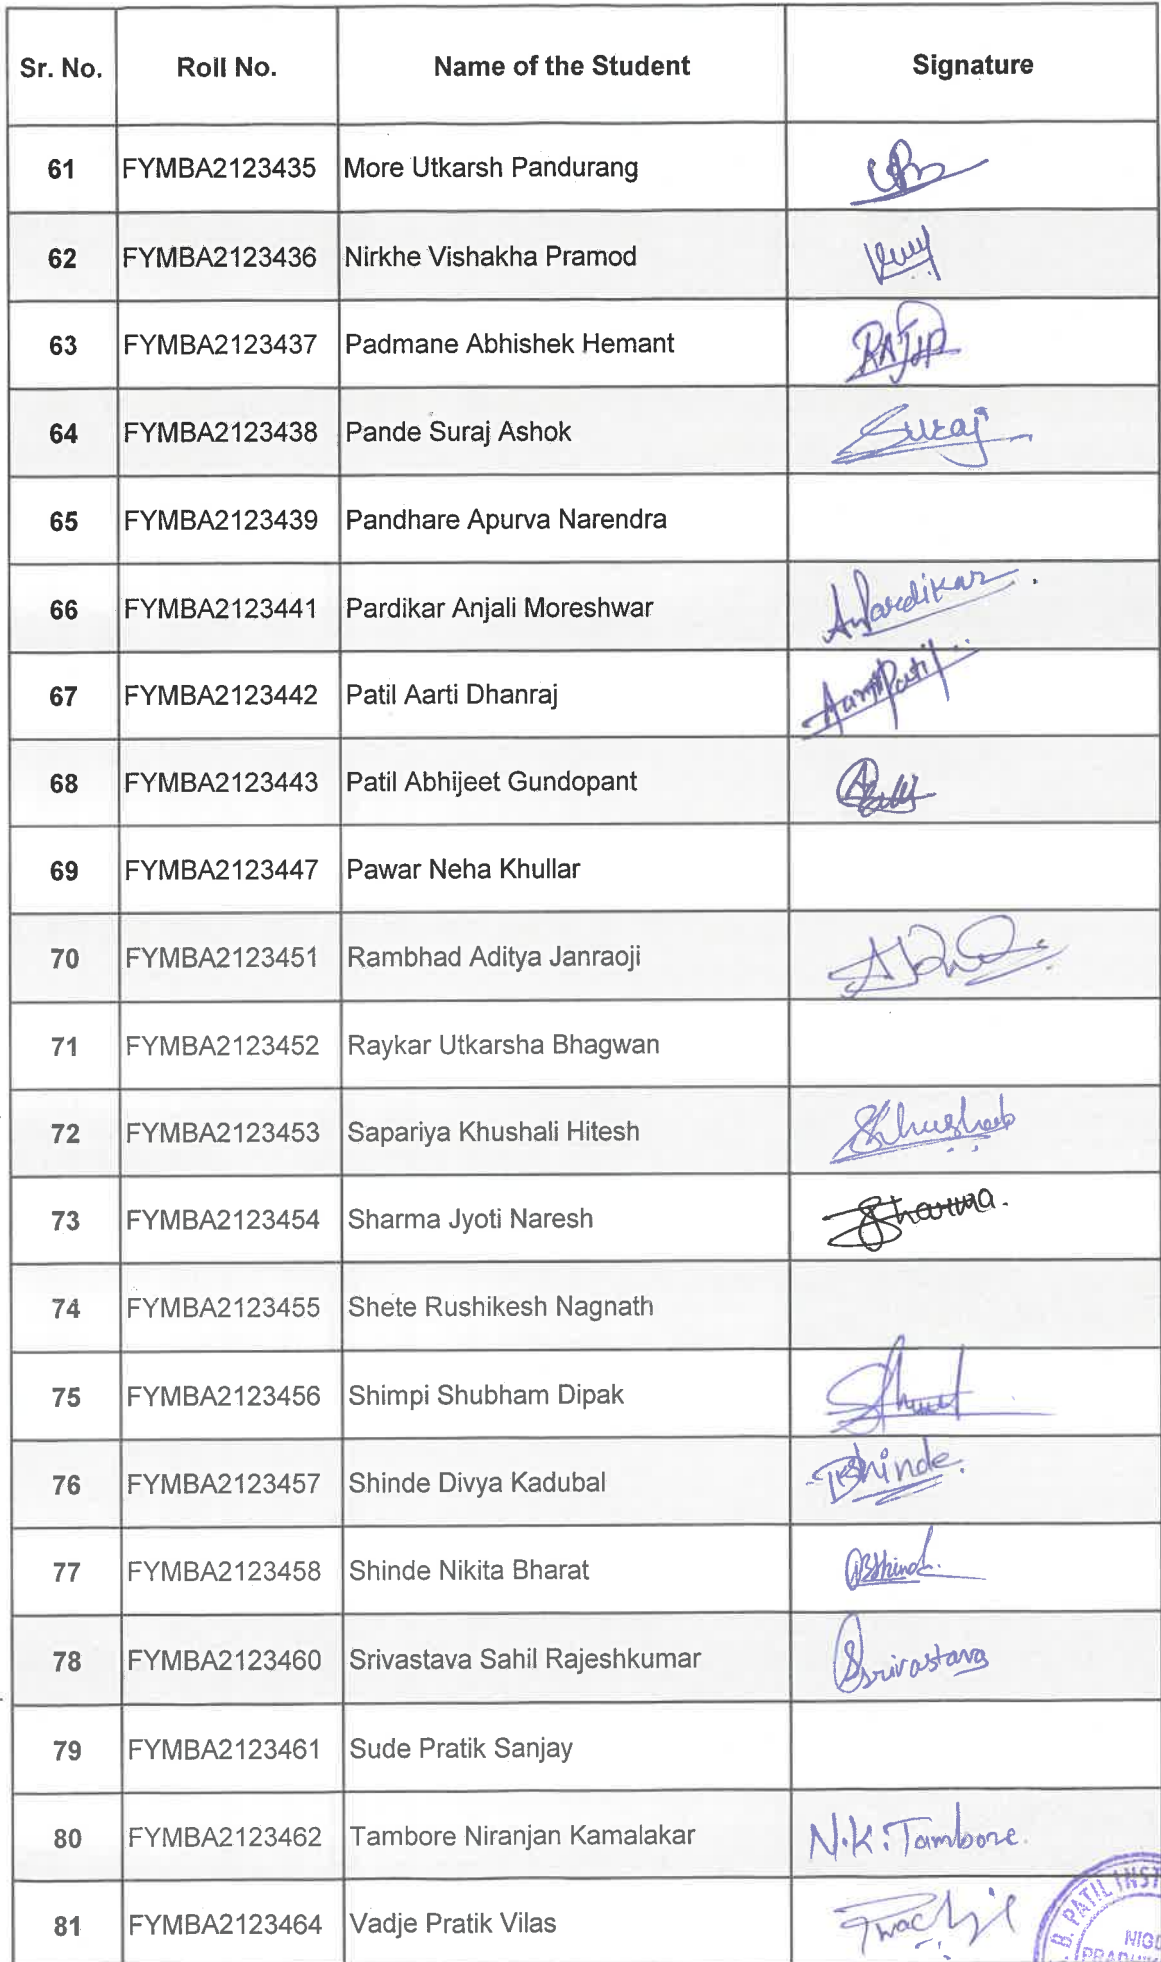 Sr. No. Roll No. Name of the Student Signature
61 FYMBA2123435 More Utkarsh Pandurang
62 FYMBA2123436 Nirkhe Vishakha Pramod
63 FYMBA2123437 Padmane Abhishek Hemant
64 FYMBA2123438 Pande Suraj Ashok Suraj
65 FYMBA2123439 Pandhare Apurva Narendra
66 FYMBA2123441 Pardikar Anjali Moreshwar APardikar
67 FYMBA2123442 Patil Aarti Dhanraj AartiPatil
68 FYMBA2123443 Patil Abhijeet Gundopant
69 FYMBA2123447 Pawar Neha Khullar
70 FYMBA2123451 Rambhad Aditya Janraoji
71 FYMBA2123452 Raykar Utkarsha Bhagwan
72 FYMBA2123453 Sapariya Khushali Hitesh
73 FYMBA2123454 Sharma Jyoti Naresh Sharma.
74 FYMBA2123455 Shete Rushikesh Nagnath
75 FYMBA2123456 Shimpi Shubham Dipak
76 FYMBA2123457 Shinde Divya Kadubal DShinde.
77 FYMBA2123458 Shinde Nikita Bharat
78 FYMBA2123460 Srivastava Sahil Rajeshkumar Srivastava
79 FYMBA2123461 Sude Pratik Sanjay
80 FYMBA2123462 Tambore Niranjan Kamalakar N.K.Tambore.
81 FYMBA2123464 Vadje Pratik Vilas
B. PATIL INST
NIGD